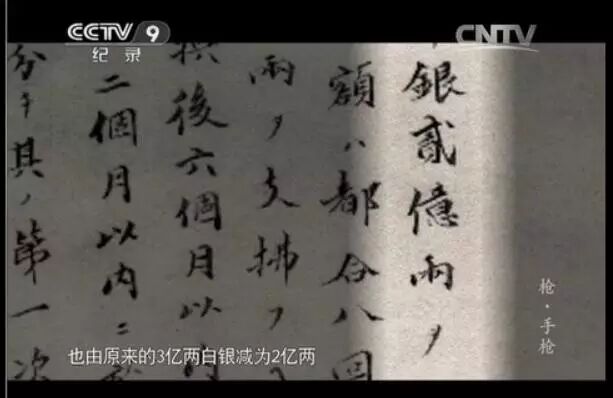 CCTV 9
纪录
CNTV
銀貳億兩ヲ
額ハ都合八回
兩ヲ支拂フ
後六個月以
二個月以内ニ
分チ其ノ第一次
枪·手枪
也由原来的3亿两白银减为2亿两